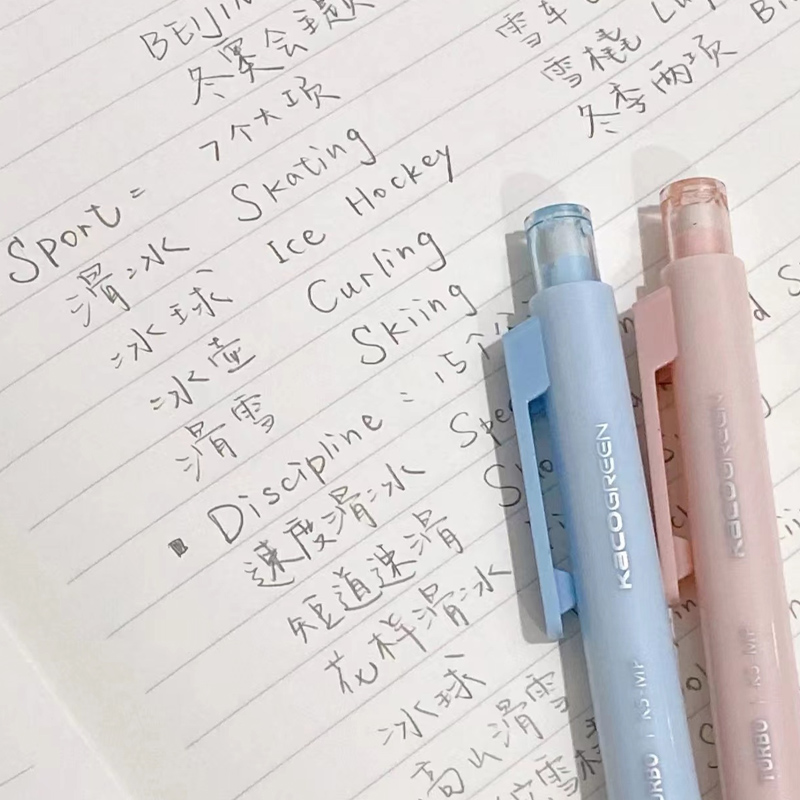 BEIJIN
冬奥会主题
7个大项
Sport=
滑冰 Skating
冰球 Ice Hockey
冰壶 Curling
滑雪 Skiing
Discipline = 15个
速度滑冰 Spe
短道速滑 Sho
花样滑冰
冰球
高山滑雪
雪车
雪橇 Lu
冬季两项 Bi
KACOGREEN
TURBO | K5-MP
KACOGREEN
TURBO | K5-MP